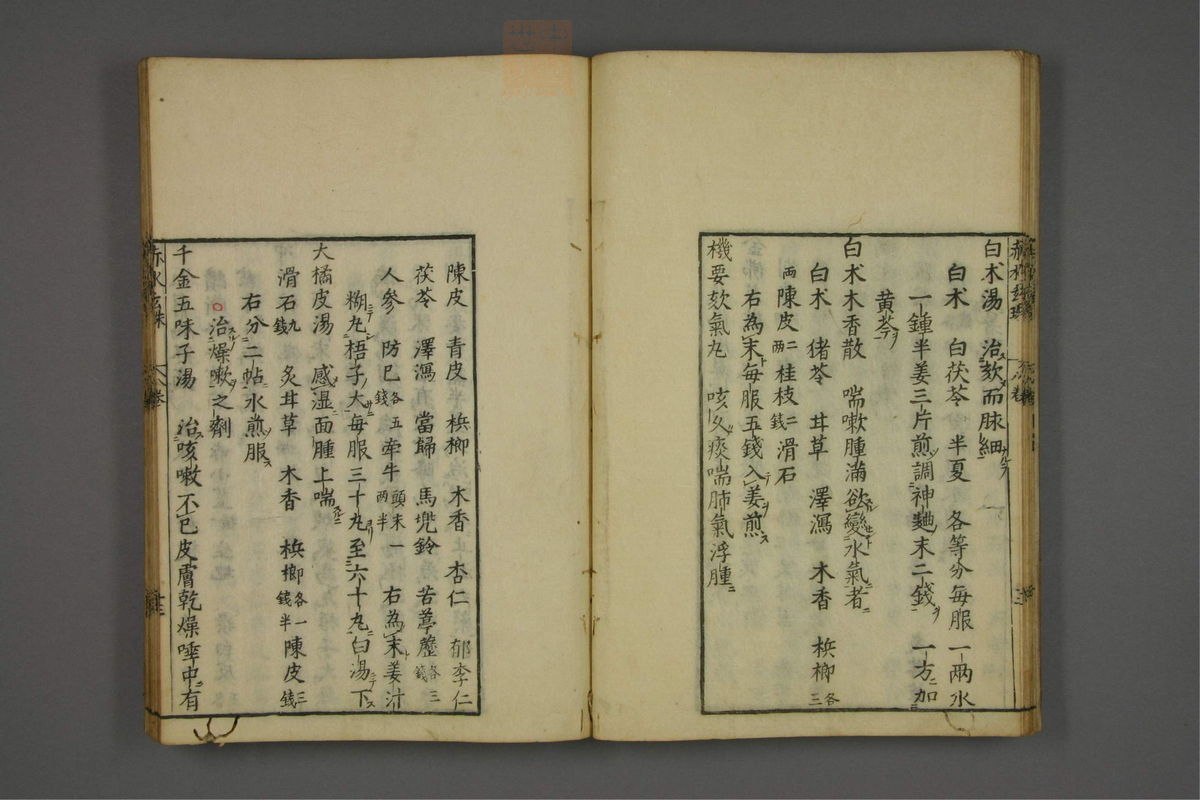 白朮湯 治欬而脉細
白朮 白茯苓 半夏 各等分毎服一兩水
一鍾半姜三片煎調神麯末二錢 一方加
黄芩
白朮木香散 喘嗽腫滿欲變水氣者
白朮 猪苓 甘草 澤瀉 木香 梹榔 各三
兩 陳皮 二兩 桂枝 二錢 滑石
右為末毎服五錢入姜煎
機要欬氣丸 咳久痰喘肺氣浮腫
陳皮 青皮 梹榔 木香 杏仁 郁李仁
茯苓 澤瀉 當歸 馬兜鈴 苦葶藶 各三錢
人參 防已 各五錢 牽牛 頭末一兩半 右為末姜汁
糊丸梧子大毎服三十丸至六十丸白湯下
大橘皮湯 感湿面腫上喘
滑石 九錢 炙甘草 木香 梹榔 各一錢半 陳皮 三錢
右分二帖水煎服
治燥嗽之劑
千金五味子湯 治咳嗽不已皮膚乾燥唾中有
赤水玄珠